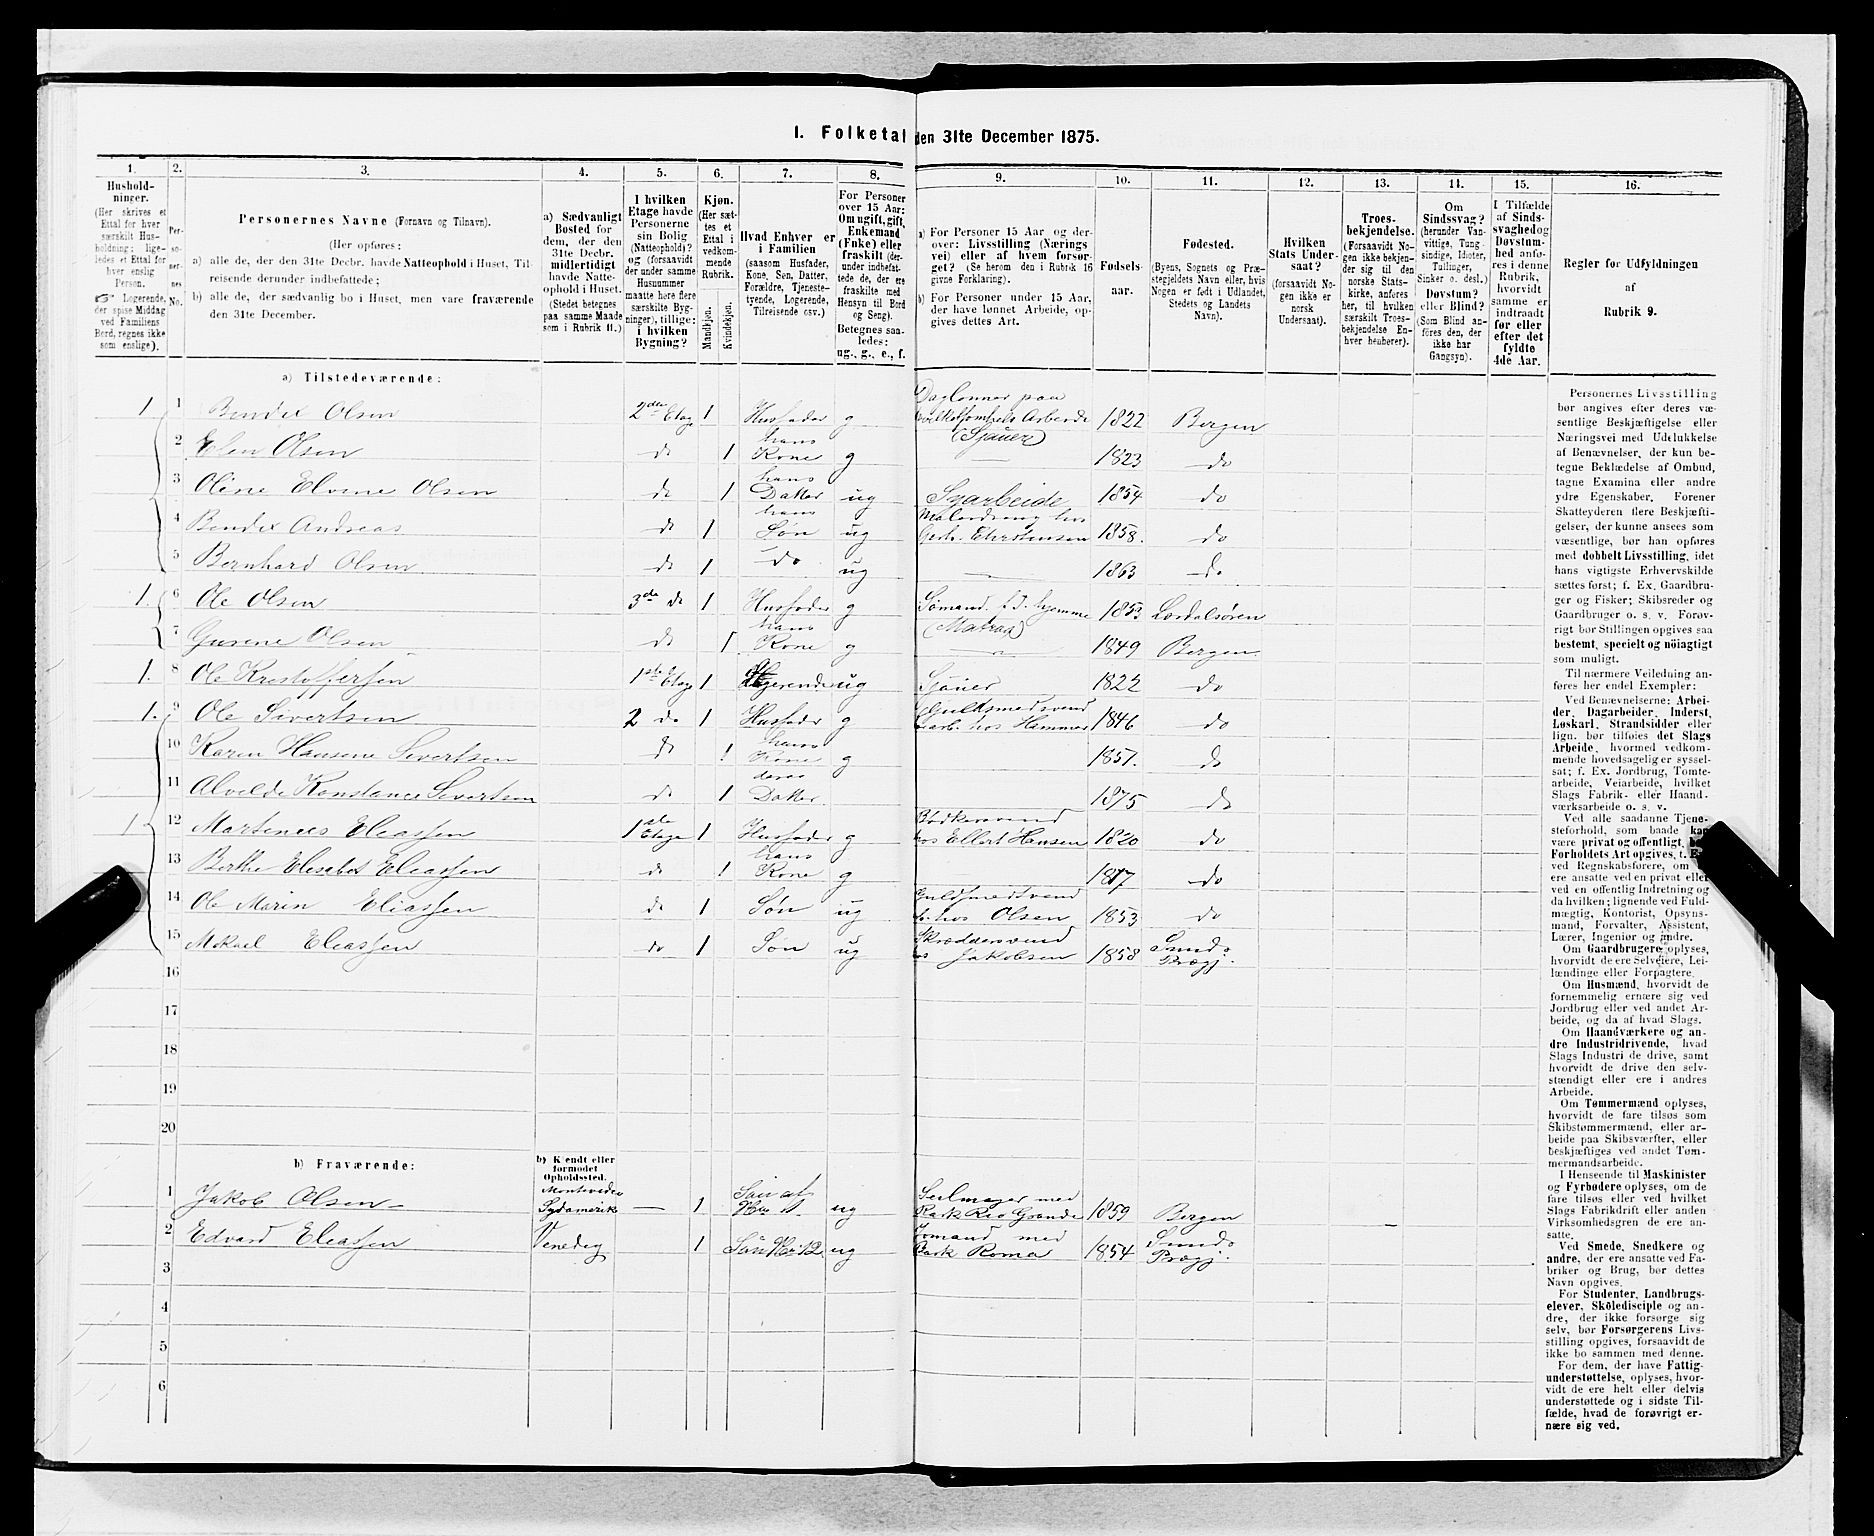 I. Folketal den 31te December 1875.
1. 2. 3. 4. 5. 6. 7. 8. 9. 10. 11. 12. 13. 14. 15. 16.
Hushold-
ninger.
(Her skrives et
Ettal for hver
særskilt Hus-
holdning; lige-
ledes et Ettal for
hver enslig
Person.
☞ Logerende,
der spise Middag
ved Familiens
Bord, regnes ikke
som enslige).
Per-
so-
ner-
nes
No.
Personernes Navne (Fornavn og Tilnavn).
(Her opføres:
a) alle de, der den 31te Decbr. havde Natteophold i Huset, Til-
reisende derunder indbefattede;
b) alle de, der sædvanlig bo i Huset, men vare fraværende
den 31te December.
a) Sædvanligt
Bosted for
dem, der den
31te Decbr.
midlertidigt
havde Natte-
ophold i Huset.
(Stedet betegnes
paa samme Maade
som i Rubrik 11.)
I hvilken
Etage havde
Personerne
sin Bolig
(Natteophold)?
og (forsaavidt
der under samme
Husnummer
maatte høre flere
særskilte Byg-
ninger), tillige:
i hvilken
Bygning?
Kjøn.
(Her sæt-
tes et
Ettal i
vedkom-
mende
Rubrik.
Mandkjøn.
Kvindekjøn.
Hvad Enhver er
i Familien
(saasom Husfader,
Kone, Søn, Datter,
Forældre, Tjeneste-
tyende, Logerende,
Tilreisende osv.)
For Personer
over 15 Aar:
Om ugift, gift,
Enkemand
(Enke) eller
fraskilt (der-
under indbefat-
tede de, der ere
fraskilte med
Hensyn til Bord
og Seng).
Betegnes saa-
ledes:
ug., g., e., f.
a) For Personer 15 Aar og der-
over: Livsstilling (Nærings
vei) eller af hvem forsør-
get? (Se herom den i Rubrik 16
givne Forklaring).
b) For Personer under 15 Aar,
der have lønnet Arbeide, op-
gives dettes Art.
Fødsels-
aar.
Fødested.
(Byens, Sognets og Præ-
stegjeldets Navn eller, hvis
Nogen er født i Udlandet,
Stedets og Landets
Navn).
Hvilken
Stats Under-
saat?
(forsaavidt No-
gen ikke er
norsk
Undersaat).
Troes-
bekjendelse.
(Forsaavidt No-
gen ikke bekjen-
der sig til den
norske Stats-
kirke, anføres
her, til hvilken
særskilt Troes-
bekjendelse En-
hver henhører).
Om
Sindssvag?
(herunder Van-
vittige, Tung-
sindige, Idioter,
Tullinger,
Sinker o. desl.)
Døvstum?
eller Blind?
(Som Blind an-
føres den, der
ikke har
Gangsyn).
I Tilfælde
af Sinds-
svaghed og
Døvstum-
hed anfø-
res i denne
Rubrik,
hvorvidt
samme er
indtraadt
før eller
efter det
fyldte
4de Aar.
Regler for Udfyldningen
af
Rubrik 9.
a) Tilstedeværende:
1 1 Bendix Olsen 2den Etage 1 Husfader g Daglønner paa (Sjauer) 1822 Bergen
2 Elen Olsen do 1 hans Kone g — 1823 do
3 Oline Elvine Olsen do 1 hans Datter ug Syarbeide 1854 do
4 Bendix Andreas do 1 hans Søn ug Malerdreng hos Gerh. Christensen 1858. do
5 Bernhard Olsen do 1 do ug — 1863 do
1. 6 Ole Olsen 3de do 1 Husfader g Sømand. f. T. hjemme (Matros) 1853 Lærdalsøren
7 Gurine Olsen do 1 hans Kone g — 1849 Bergen
1. 8 Ole Kristoffersen 1ste Etage 1 Logerende ug Sjauer 1822 do
1. 9 Ole Sivertsen 2 do 1 Husfader g Guldsmedsvend i Arb. hos Hammer 1846 do
10 Karen Hansine Sivertsen do 1 hans Kone g 1851. do
11 Alvilde Konstance Sivertsen do 1 deres Datter. 1875 do
1 12 Martinus Eliassen 1ste Etage 1 Husfader g Bødkersvend hos Ellert Hansen 1820 do
13 Berthe Elisabet Eliassen do 1 hans Kone g 1817 do
14 Ole Marin Eliassen do 1 Søn ug Guldsmedsvend hos Olsen 1853 do
15 Mikael Eliassen do 1 Søn ug Skræddersvend hos Jakobsen 1858 Sund Prægj.
16
17
18
19
20
b) Fraværende: b) Kjendt eller
formodet
Opholdssted.
1 Jakob Olsen Montevideo Sydamerika — 1 Søn af No 1. ug Seilmager med Bark Rio Grande 1859 Bergen
2 Edvard Eliassen Venedig 1 Søn No 12. ug Sømand med Bark Roma 1854 Sund Prægj.
3
4
5
6
Personernes Livsstilling
bør angives efter deres væ-
sentlige Beskjæftigelse eller
Næringsvei med Udelukkelse
af Benævnelser, der kun be-
tegne Beklædelse af Ombud,
tagne Examina eller andre
ydre Egenskaber. Forener
Skatteyderen flere Beskjæfti-
gelser, der kunne ansees som
væsentlige, bør han opføres
med dobbelt Livsstilling, idet
hans vigtigste Erhvervskilde
sættes først; f. Ex. Gaardbru-
ger og Fisker; Skibsreder og
Gaardbruger o. s. v. Forøv-
rigt bør Stillingen opgives saa
bestemt, specielt og nøiagtigt
som muligt.
Til nærmere Veiledning an-
føres her endel Exempler:
Ved Benævnelserne: Arbei-
der, Dagarbeider, Inderst,
Løskarl, Strandsidder eller
lign. bør tilføies det Slags
Arbeide, hvormed vedkom-
mende hovedsagelig er syssel-
sat; f. Ex. Jordbrug, Tomte-
arbeide, Veiarbeide, hvilket
Slags Fabrik- eller Haand-
værksarbeide o. s. v.
Ved alle saadanne Tjene-
steforhold, som baade kan
være privat og offentlig,
Forholdets Art opgives, t. Ex.
ved Regnskabsførere, om
ere ansatte ved en privat eller
ved en offentlig Indretning og
da hvilken; lignende ved Fuld-
mægtig, Kontorist, Opsyns-
mand, Forvalter, Assistent,
Lærer, Ingeniør og andre.
Om Gaardbrugere oplyses,
hvorvidt de ere Selveiere, Lei-
lændinge eller Forpagtere.
Om Husmænd, hvorvidt de
fornemmelig ernære sig ved
Jordbrug eller ved andet Ar-
beide, og da af hvad Slags.
Om Haandværkere og an-
dre Industridrivende, hvad
Slags Industri de drive, samt
hvorvidt de drive den selv-
stændigt eller ere i andres
Arbeide.
Om Tømmermænd oplyses,
hvorvidt de fare tilsøs som
Skibstømmermænd, eller ar-
beide paa Skibsværfter, eller
beskjæftiges ved andet Tøm-
mermandsarbeide.
I Henseende til Maskinister
og Fyrbødere oplyses, om de
fare tilsøs eller ved hvilket
Slags Fabrikdrift eller anden
Virksomhedsgren de ere an-
satte.
Ved Smede, Snedkere og
andre, der ere ansatte ved Fa-
briker og Brug, bør dettes
Navn opgives.
For Studenter, Landbrugs-
elever, Skoledisciple og an-
dre, der ikke forsørge sig
selv, bør Forsørgerens Livs-
stilling opgives, forsaavidt de
ikke bo sammen med denne.
For dem, der have Fattig-
understøttelse, oplyses, hvor-
vidt de ere helt eller delvis
understøttede og i sidste Til-
fælde, hvad de forøvrigt er-
nære sig ved.